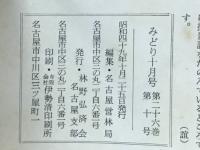 す。
(誼)
みどり十月号 第二六巻 第十号
昭和四十九年十月二十五日発行
編集・名古屋営林局
名古屋市中区三の丸二丁目六番二号
発行・林野弘済会 名古屋支部
名古屋市中区三の丸二丁目六番一号
印刷・合資会社 伊勢清印刷所
名古屋市中川区三ッ屋町一